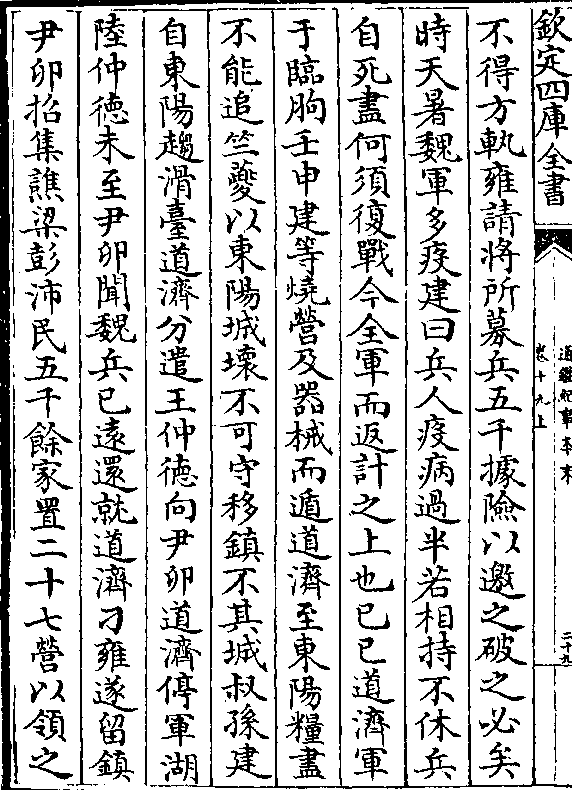 欽定四庫全書
通鑑紀事本末
卷十九上
二十九
不得方軌雍請將所募兵五千據險以邀之破之必矣
時天暑魏軍多疫建曰兵人疫病過半若相持不休兵
自死盡何須復戰今全軍而返計之上也已已道濟軍
于臨朐壬申建等燒營及器械而遁道濟至東陽糧盡
不能追竺夔以東陽城壞不可守移鎮不其城叔孫建
自東陽趨滑臺道濟分遣王仲德向尹卯道濟停軍湖
陸仲德未至尹卯聞魏兵已遠還就道濟刁雍遂留鎮
尹卯招集譙梁彭沛民五千餘家置二十七營以領之